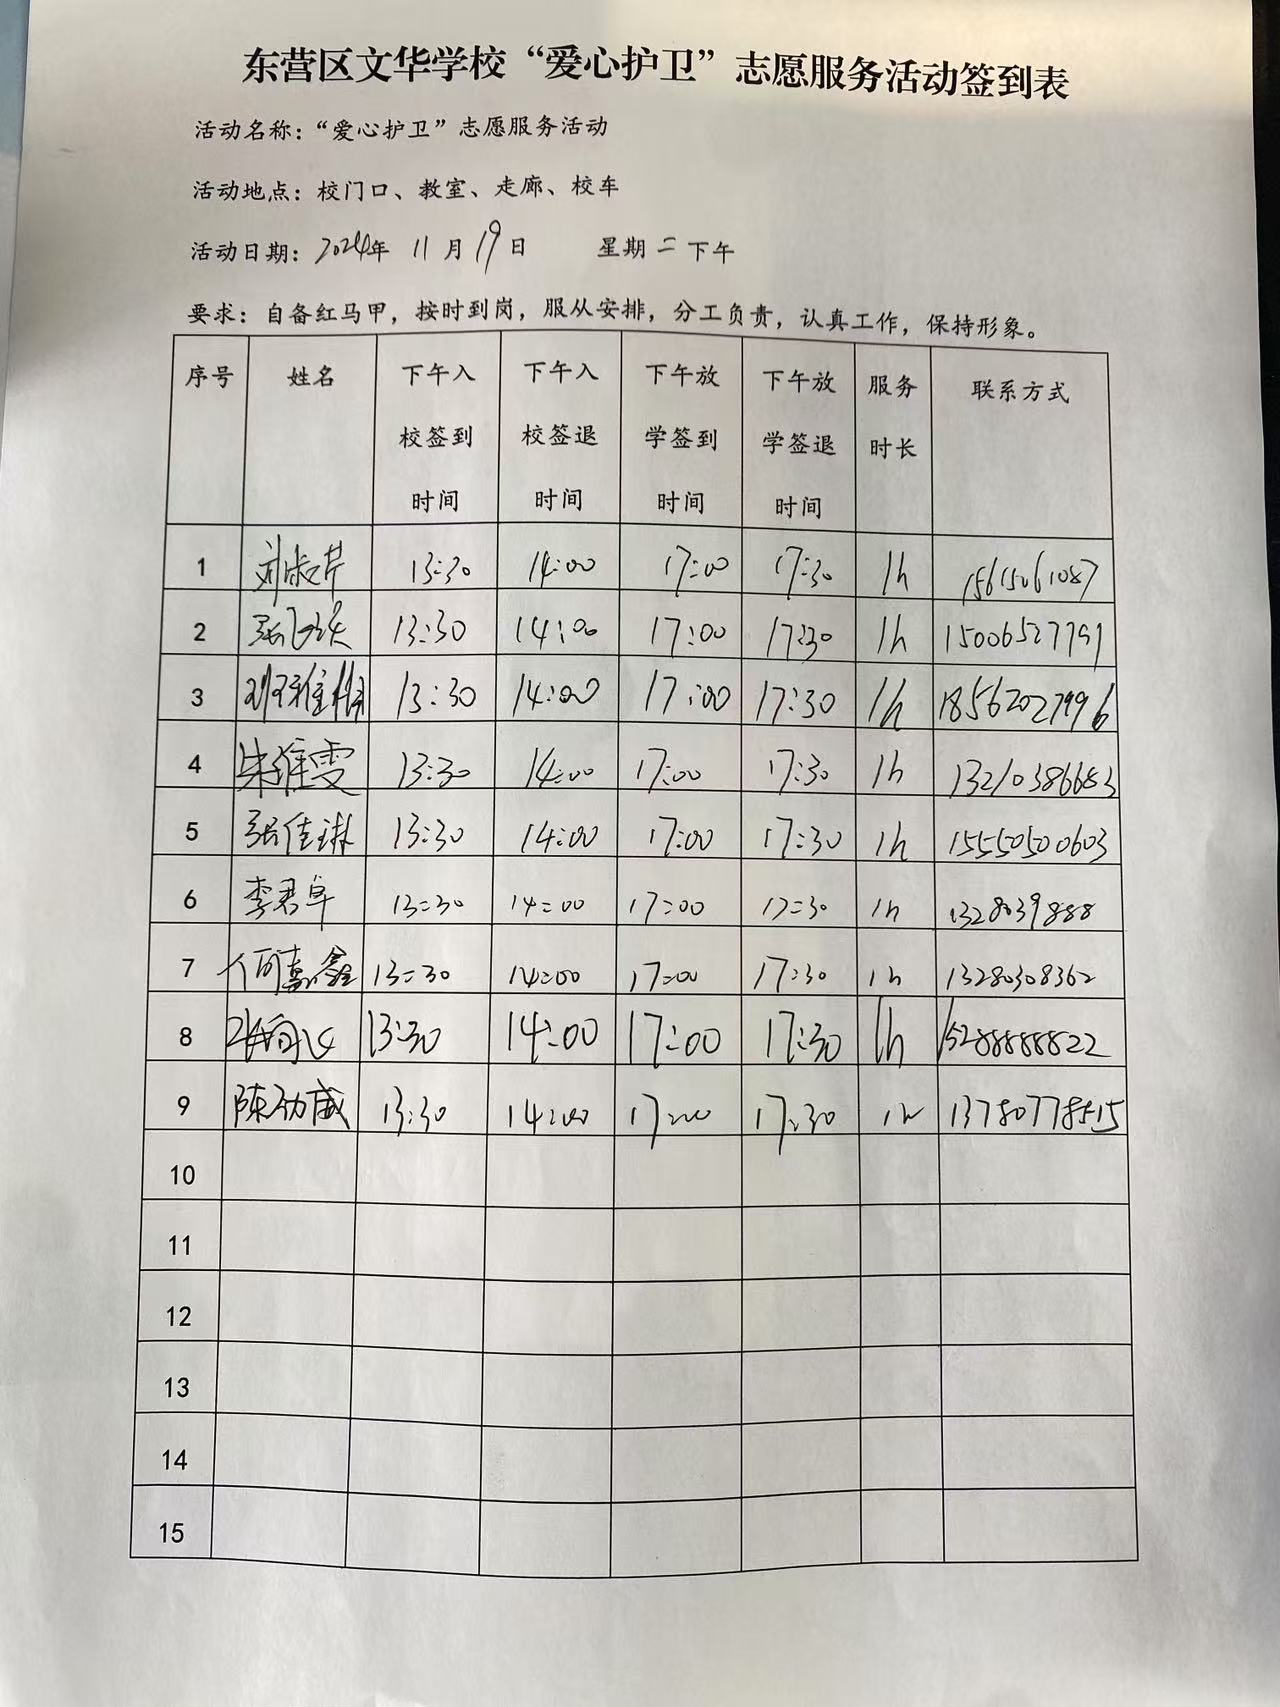 东营区文华学校“爱心护卫”志愿服务活动签到表
活动名称：“爱心护卫”志愿服务活动
活动地点：校门口、教室、走廊、校车
活动日期：2024年 11月19日 星期二下午
要求：自备红马甲，按时到岗，服从安排，分工负责，认真工作，保持形象。
序号 姓名 下午入校签到时间 下午入校签退时间 下午放学签到时间 下午放学签退时间 服务时长 联系方式
1 刘淑芹 13:30 14:00 17:00 17:30 1h 15615061087
2 13:30 14:00 17:00 17:30 1h 15006527791
3 13:30 14:00 17:00 17:30 1h 18562027996
4 朱雅雯 13:30 14:00 17:00 17:30 1h 13210386683
5 张佳琳 13:30 14:00 17:00 17:30 1h 15550500603
6 李君卓 13:30 14:00 17:00 17:30 1h
7 何嘉鑫 13:30 14:00 17:00 17:30 1h 13280308362
8 13:30 14:00 17:00 17:30 1h 15288888822
9 陈劲威 13:30 14:00 17:00 17:30 1h 13780778515
10
11
12
13
14
15